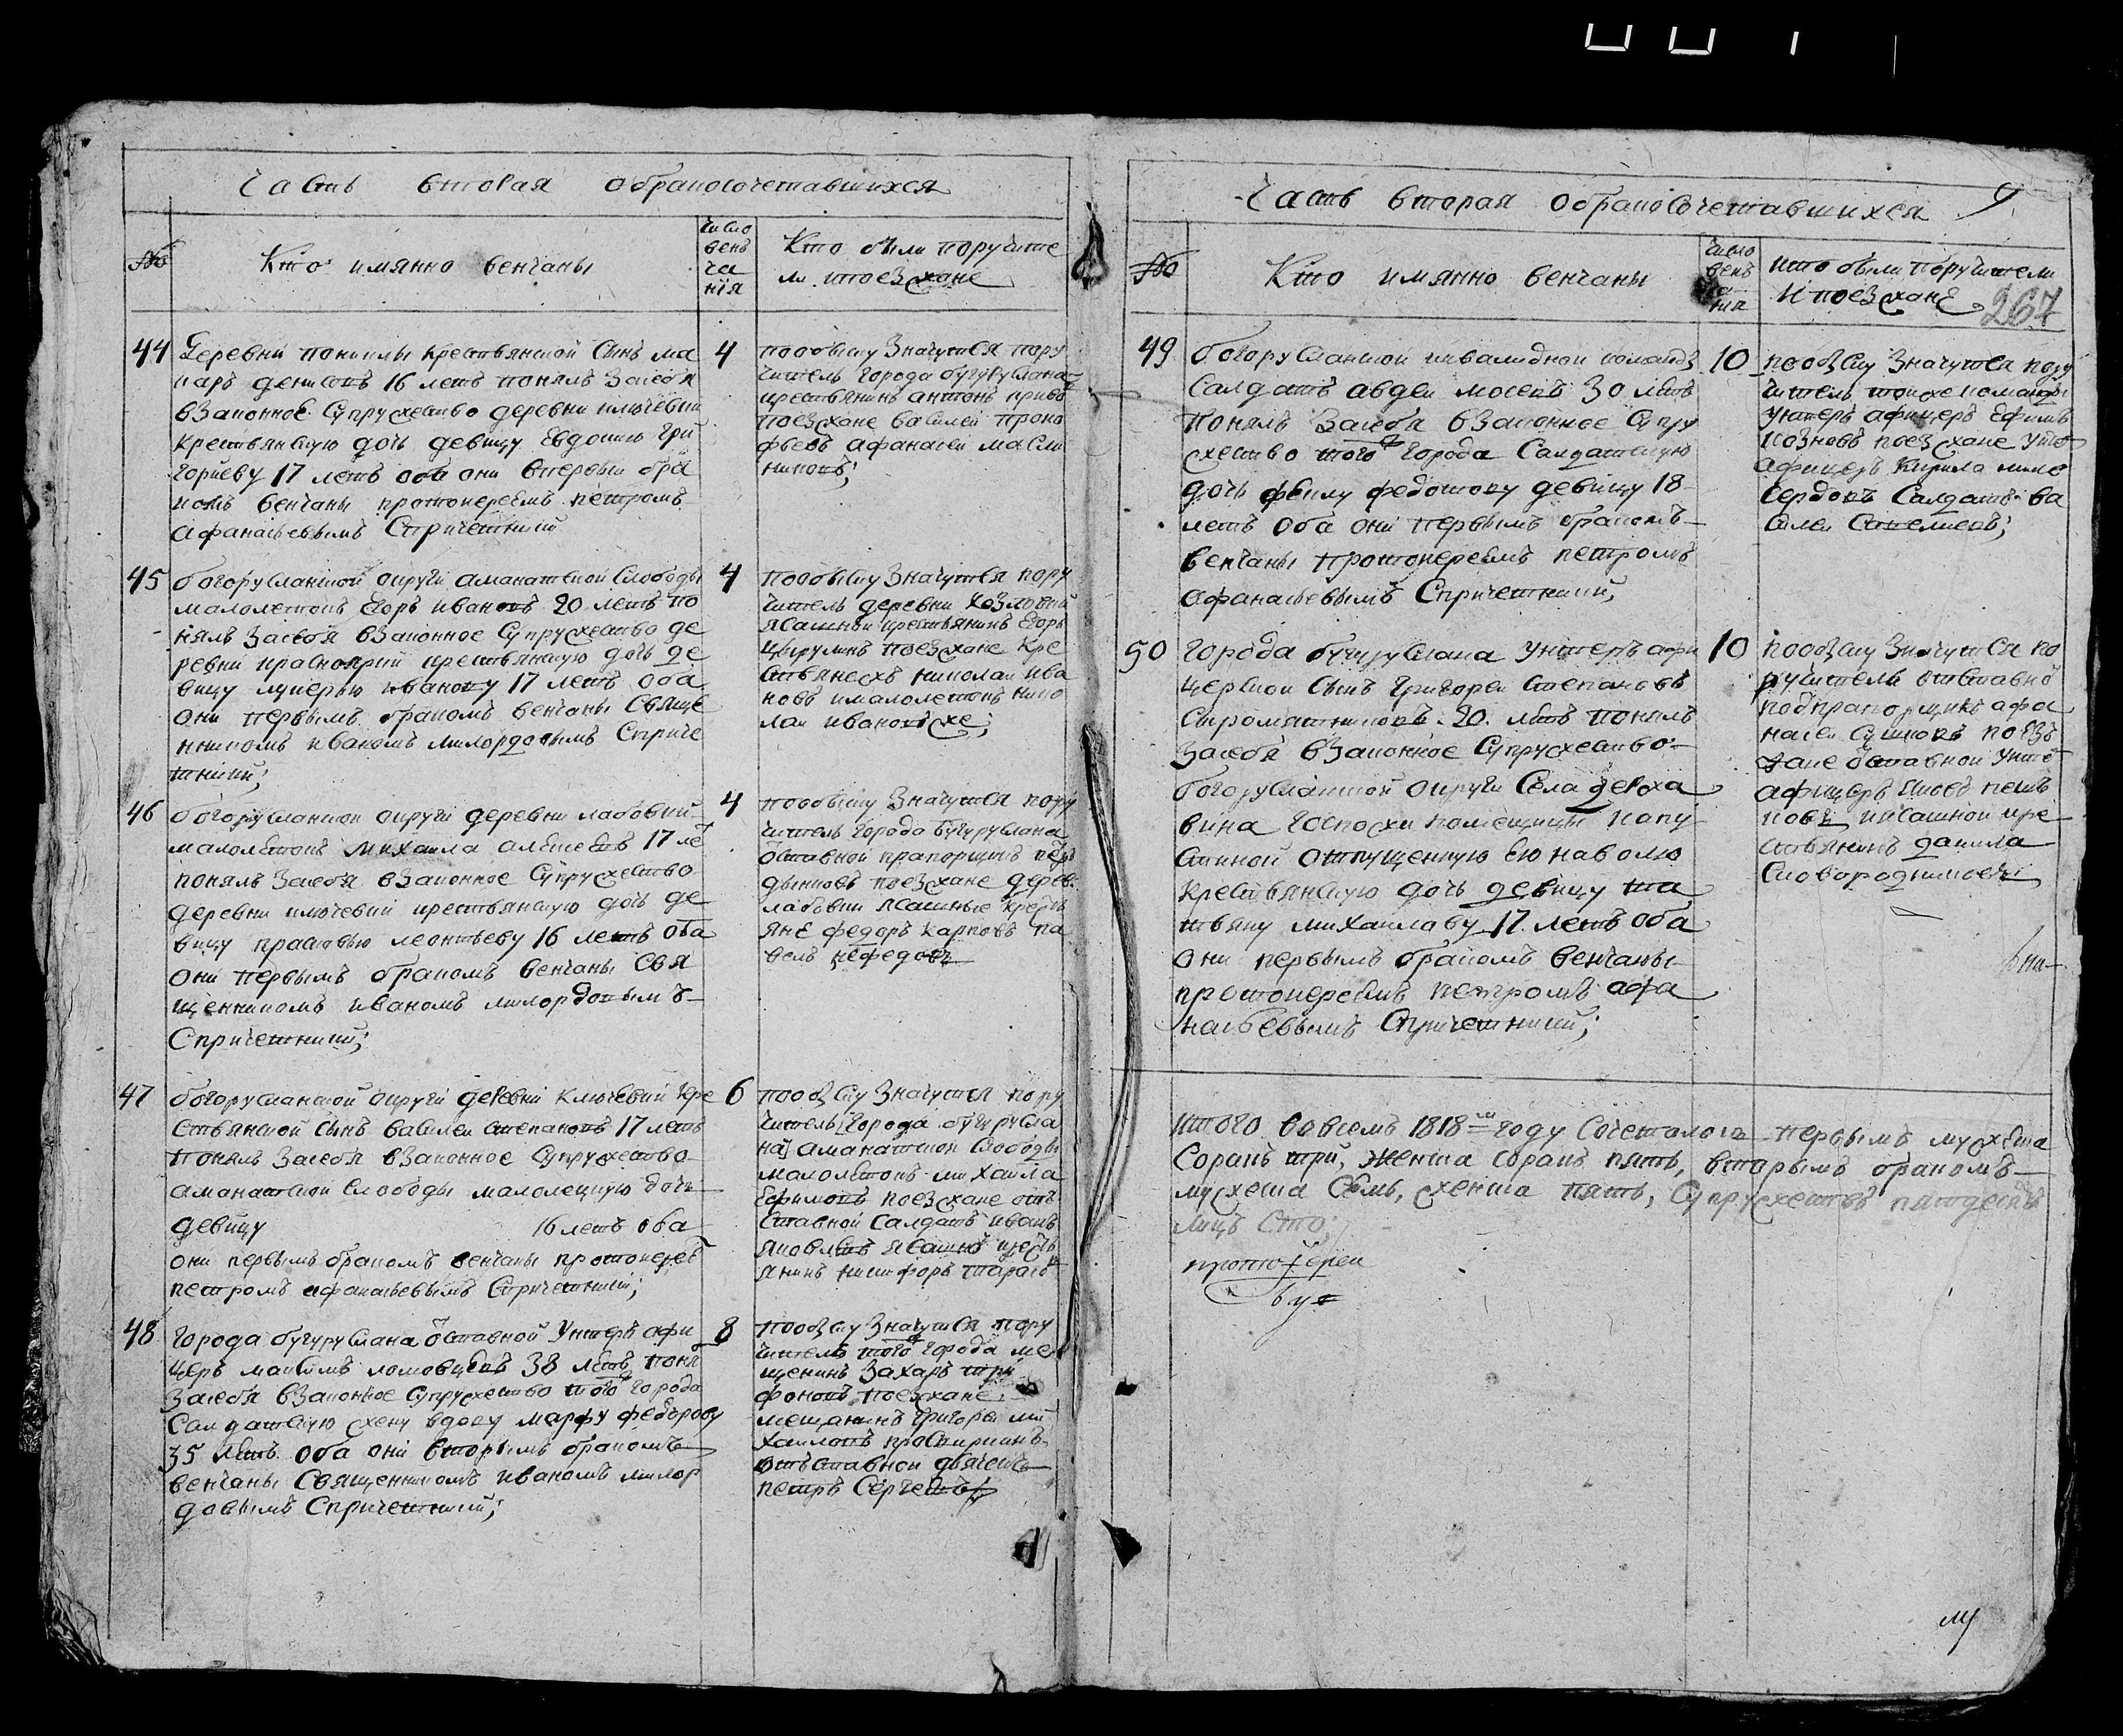 Часть вторая обракосочетавшихся
№
Кто имянно венчаны
число
вен
ча
нія
Кто были поручите
ли и поезжане
44
Деревни кре стьянской сынъ ма
каръ денисовъ 16 летъ понялъ засебя
взаконное супружество деревни ключевки
крестьянскую дочь девицу Евдокию гри
горьеву 17 летъ оба они первым бра
комъ венчаны протоиереемъ петромъ
афанасьевымъ спричетники
4
пообыску значутся пору
читель города бугуруслана
крестьянинъ антонъ
поезжане василей проко
фьевъ афанасей масли
никовъ;
45
богорусланской округи аманатской слободы
малолетокъ Егоръ ивановъ 20 летъ по
нялъ засебя взаконное супружество де
ревни красноярки крестьянскую дочь де
вицу лукерью иванову 17 летъ оба
они первымъ бракомъ венчаны свяще
нникомъ иваномъ милордовымъ спричет
тники;
4
пообыску значутся пору
читель деревни козловки
ясашной крестьянинъ Егоръ
поезжане кре
стьянескъ николаи ива
новъ ималолетокъ нико
лаи ивановъ же;
46
богорусланской округи деревни лабовки
малолетокъ михаила алексеевъ 17 ле
понялъ засебя взаконное супружество
деревни ключевки крестьянскую дочь де
вицу прасковью леонтьеву 16 летъ оба
они первымъ бракомъ венчаны свя
щенникомъ иваномъ милордовымъ
спричетники;
4
пообыску значутся пору
читель города бугуруслана
отставной прапорщикъ петръ
поезжане дерев.
лабовки ясашные кресть
яне федоръ карповъ па
велъ нефедовъ
47
богорусланской округи деревни ключевки кре
стьянской сынъ василеи степановъ 17 летъ
понялъ засебя взаконное супружество
аманатской слободы малолецкую дочь
девицу 16 летъ оба
они первымъ бракомъ венчаны протоиерее
петромъ афанасьевымъ спричетники;
6
пообыску значутся пору
читель города бугурусла
на аманатской слободы
малолетокъ михаила
Ефимовъ поезжане отъ
ставной салдатъ иванъ
яковлевъ ясашной кресть
янинъ никифоръ тарасо
48
города бугуруслана отставной унтеръ афи
церъ максимъ 38 летъ поня
засебя взаконное супружество того города
салдатскую жену вдову марфу федорову
35 летъ оба они вторымъ бракомъ
венчаны священникомъ иваномъ милор
довымъ спричетники;
8
пообыску значутся пору
читель того города ме
щенинъ захаръ три
фоновъ поезжане:
мещанинъ григореи ми
хаиловъ
отъставнои дьячекъ
петръ сергеевъ;
Часть вторая обракосочетавшихся
9
№
Кто имянно венчаны
число
вен
ча
нія
кто были поручители
и поезжане
267
49
богорусланской инвалидной команды
салдатъ авдеи мосевъ 30 летъ
понялъ засебя взаконное супру
жество того города салдатскую
дочь феклу федотову девицу 18
летъ оба они первымъ бракомъ
венчаны протоиереемъ петромъ
афанасьевымъ спричетники;
10
пообыску значутся пору
читель тойже команды
унтеръ афицеръ Ефимъ
позновъ поезжане унте
афицеръ кирила мило
сердовъ салдатъ ва
силеи савелиевъ;
50
города бугуруслана унтеръ афи
церской сынъ григореи степановъ
сыромятниковъ 20 летъ понялъ
засебя взаконное супружество
богорусланской округи села держа
вина госпожи помещицы капу
стиной отпущенную Ею наволю
крестьянскую дочь девицу та
тьяну михаилову 17 летъ оба
они первымъ бракомъ венчаны
протоиереемъ петромъ афа
насьевымъ спричетники;
10
пообыску значутся по
ручители отставной
подпрапорщикъ афа
насеи сушковъ поезъ
жане отставной унте
афицеръ яковъ
ковъ иясашной кре
стьянинъ данила
сковородниковъ
Итого вовсемъ 1818м году сочеталось первымъ мужеска
сорокъ три, женска сорокъ пять, вторымъ бракомъ
мужеска семь, женска пять, супружествъ пятдесятъ
лицъ сто;
протоіереи